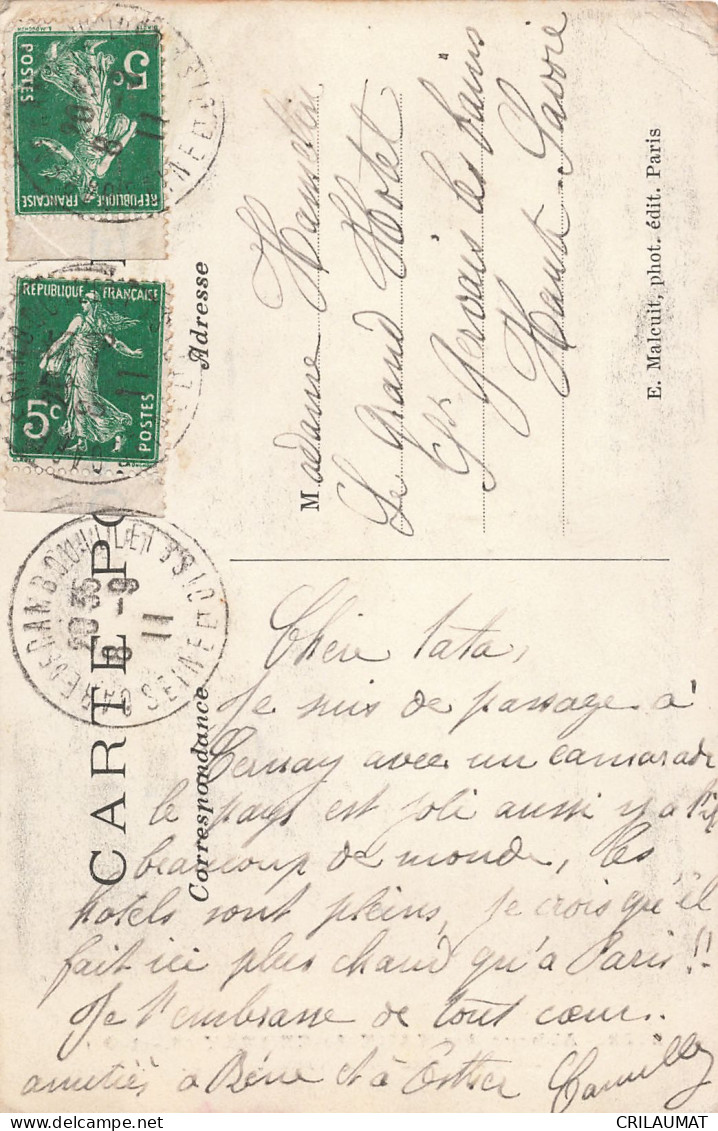 CARTE PO
Correspondance
Adresse
5
POSTES
RÉPUBLIQUE FRANÇAISE
RÉPUBLIQUE FRANÇAISE
5c
POSTES
RAMBOUILLET
20 35
8 -9
11
SEINE
Madame
Le Grand Hotel
St Gervais les bains
Haute Savoie
E. Malcuit, phot. édit. Paris
Chère tata,
Je suis de passage à
Cernay avec un camarade
le pays est joli aussi y a t'il
beaucoup de monde, les
hotels sont pleins, je crois qu'il
fait ici plus chaud qu'a Paris!!
Je t'embrasse de tout cœur.
amitiés a Réne et à Esther Camille
CRILAUMAT